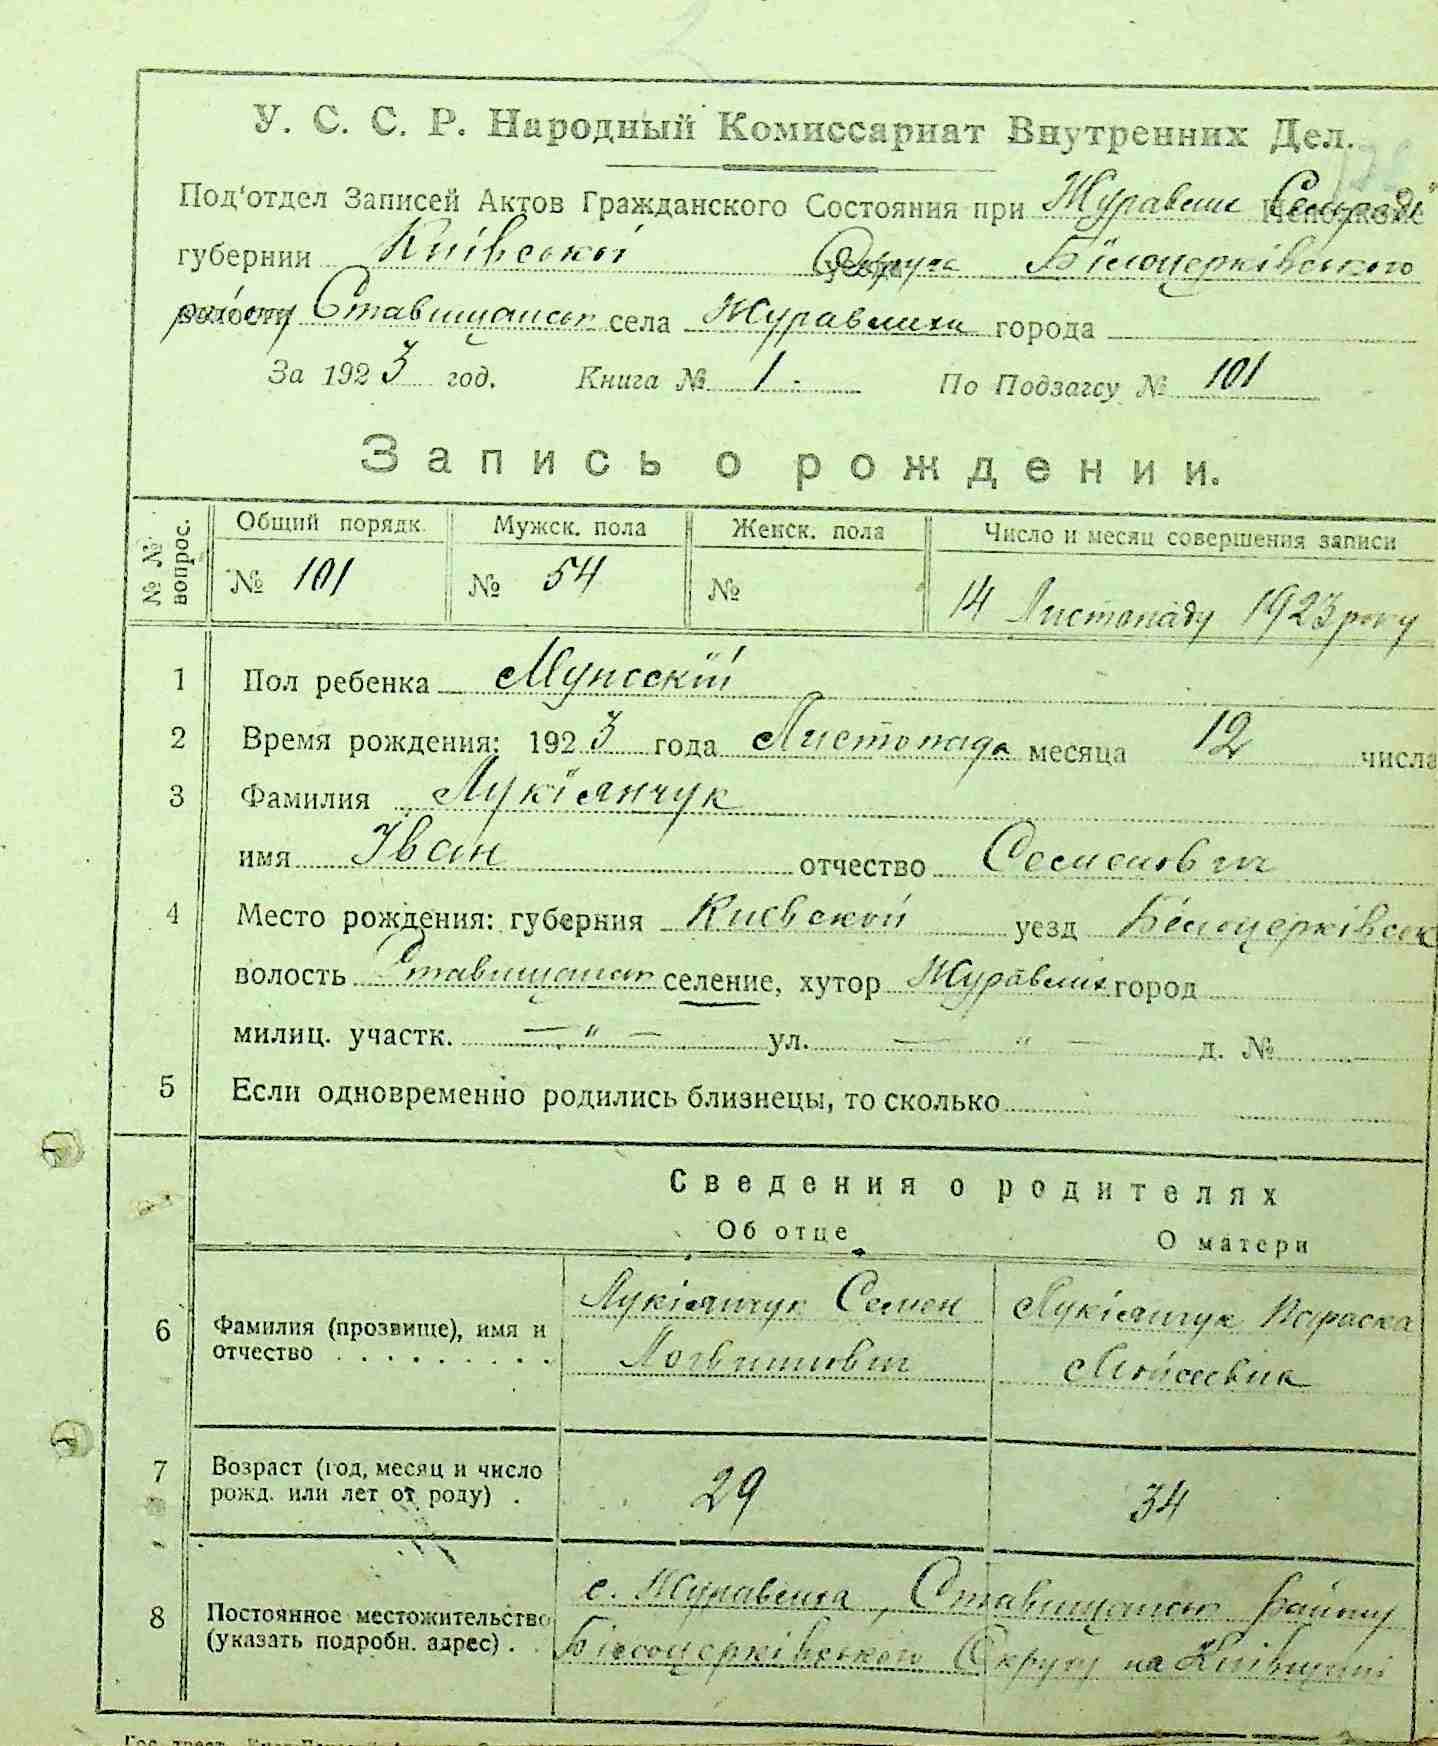 У. С. С. Р. Народный Комиссариат Внутренних Дел.
Под'отдел Записей Актов Гражданского Состояния при Журавлис. Сельради
губернии Київської Округа Білоцерківського
району Ставищанськ села Журавлиха города
За 1923 год. Книга № 1. По Подзагсу № 101
Запись о рождении.
№ № вопрос.
Общий порядк. Мужск. пола Женск. пола Число и месяц совершения записи
№ 101 № 54 № 14 Листопаду 1923 року
1 Пол ребенка Мужский
2 Время рождения: 1923 года Листопада месяца 12 числа
3 Фамилия Лукіянчук
имя Іван отчество Семенович
4 Место рождения: губерния Киевской уезд Білоцерківськ
волость Ставищанськ селение, хутор Журавлиха город
милиц. участк. — " — ул. — " — д. №
5 Если одновременно родились близнецы, то сколько
Сведения о родителях
Об отце О матери
6 Фамилия (прозвище), имя и отчество Лукіянчук Семен Логвинович Лукіянчук Параска Мойсеевна
7 Возраст (год, месяц и число рожд. или лет от роду) 29 34
8 Постоянное местожительство (указать подробн. адрес) с. Журавлиха, Ставищанськ Району
Білоцерківського Округу на Київщині